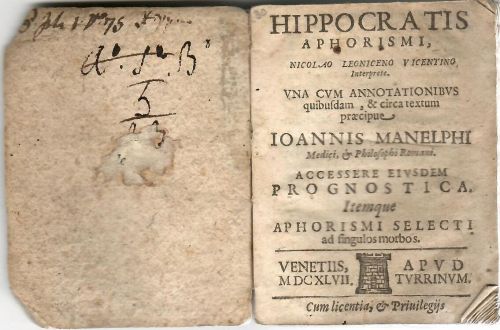 5
HIPPOCRATIS
APHORISMI,
NICOLAO LEONICENO VICENTINO,
Interprete.
VNA CVM ANNOTATIONIBVS
quibusdam, & circa textum
præcipue
IOANNIS MANELPHI
Medici, & Philosophi Romani.
ACCESSERE EIVSDEM
PROGNOSTICA.
Itemque
APHORISMI SELECTI
ad singulos morbos.
VENETIIS, APVD
MDCXLVII. TVRRINVM.
Cum licentia, & Priuilegijs